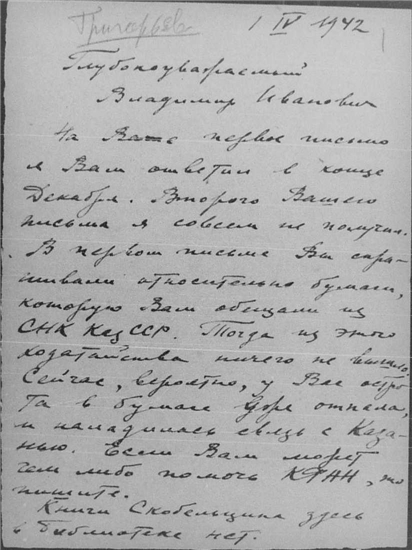 Григорьев
1 IV 1942
Глубокоуважаемый
Владимир Иванович
На Ваше первое письмо
я Вам ответил в конце
Декабря. Второго Вашего
письма я совсем не получил.
В первом письме Вы спра-
шивали относительно бумаги,
которую Вам обещали из
СНК КазССР. Тогда из этого
ходатайства ничего не вышло.
Сейчас, вероятно, у Вас остро-
та в бумаге уже отпала,
и наладилась связь с Каза-
нью. Если Вам может
чем либо помочь КФАН, то
пишите.
Книги Скобельцина здесь
в библиотеке нет.